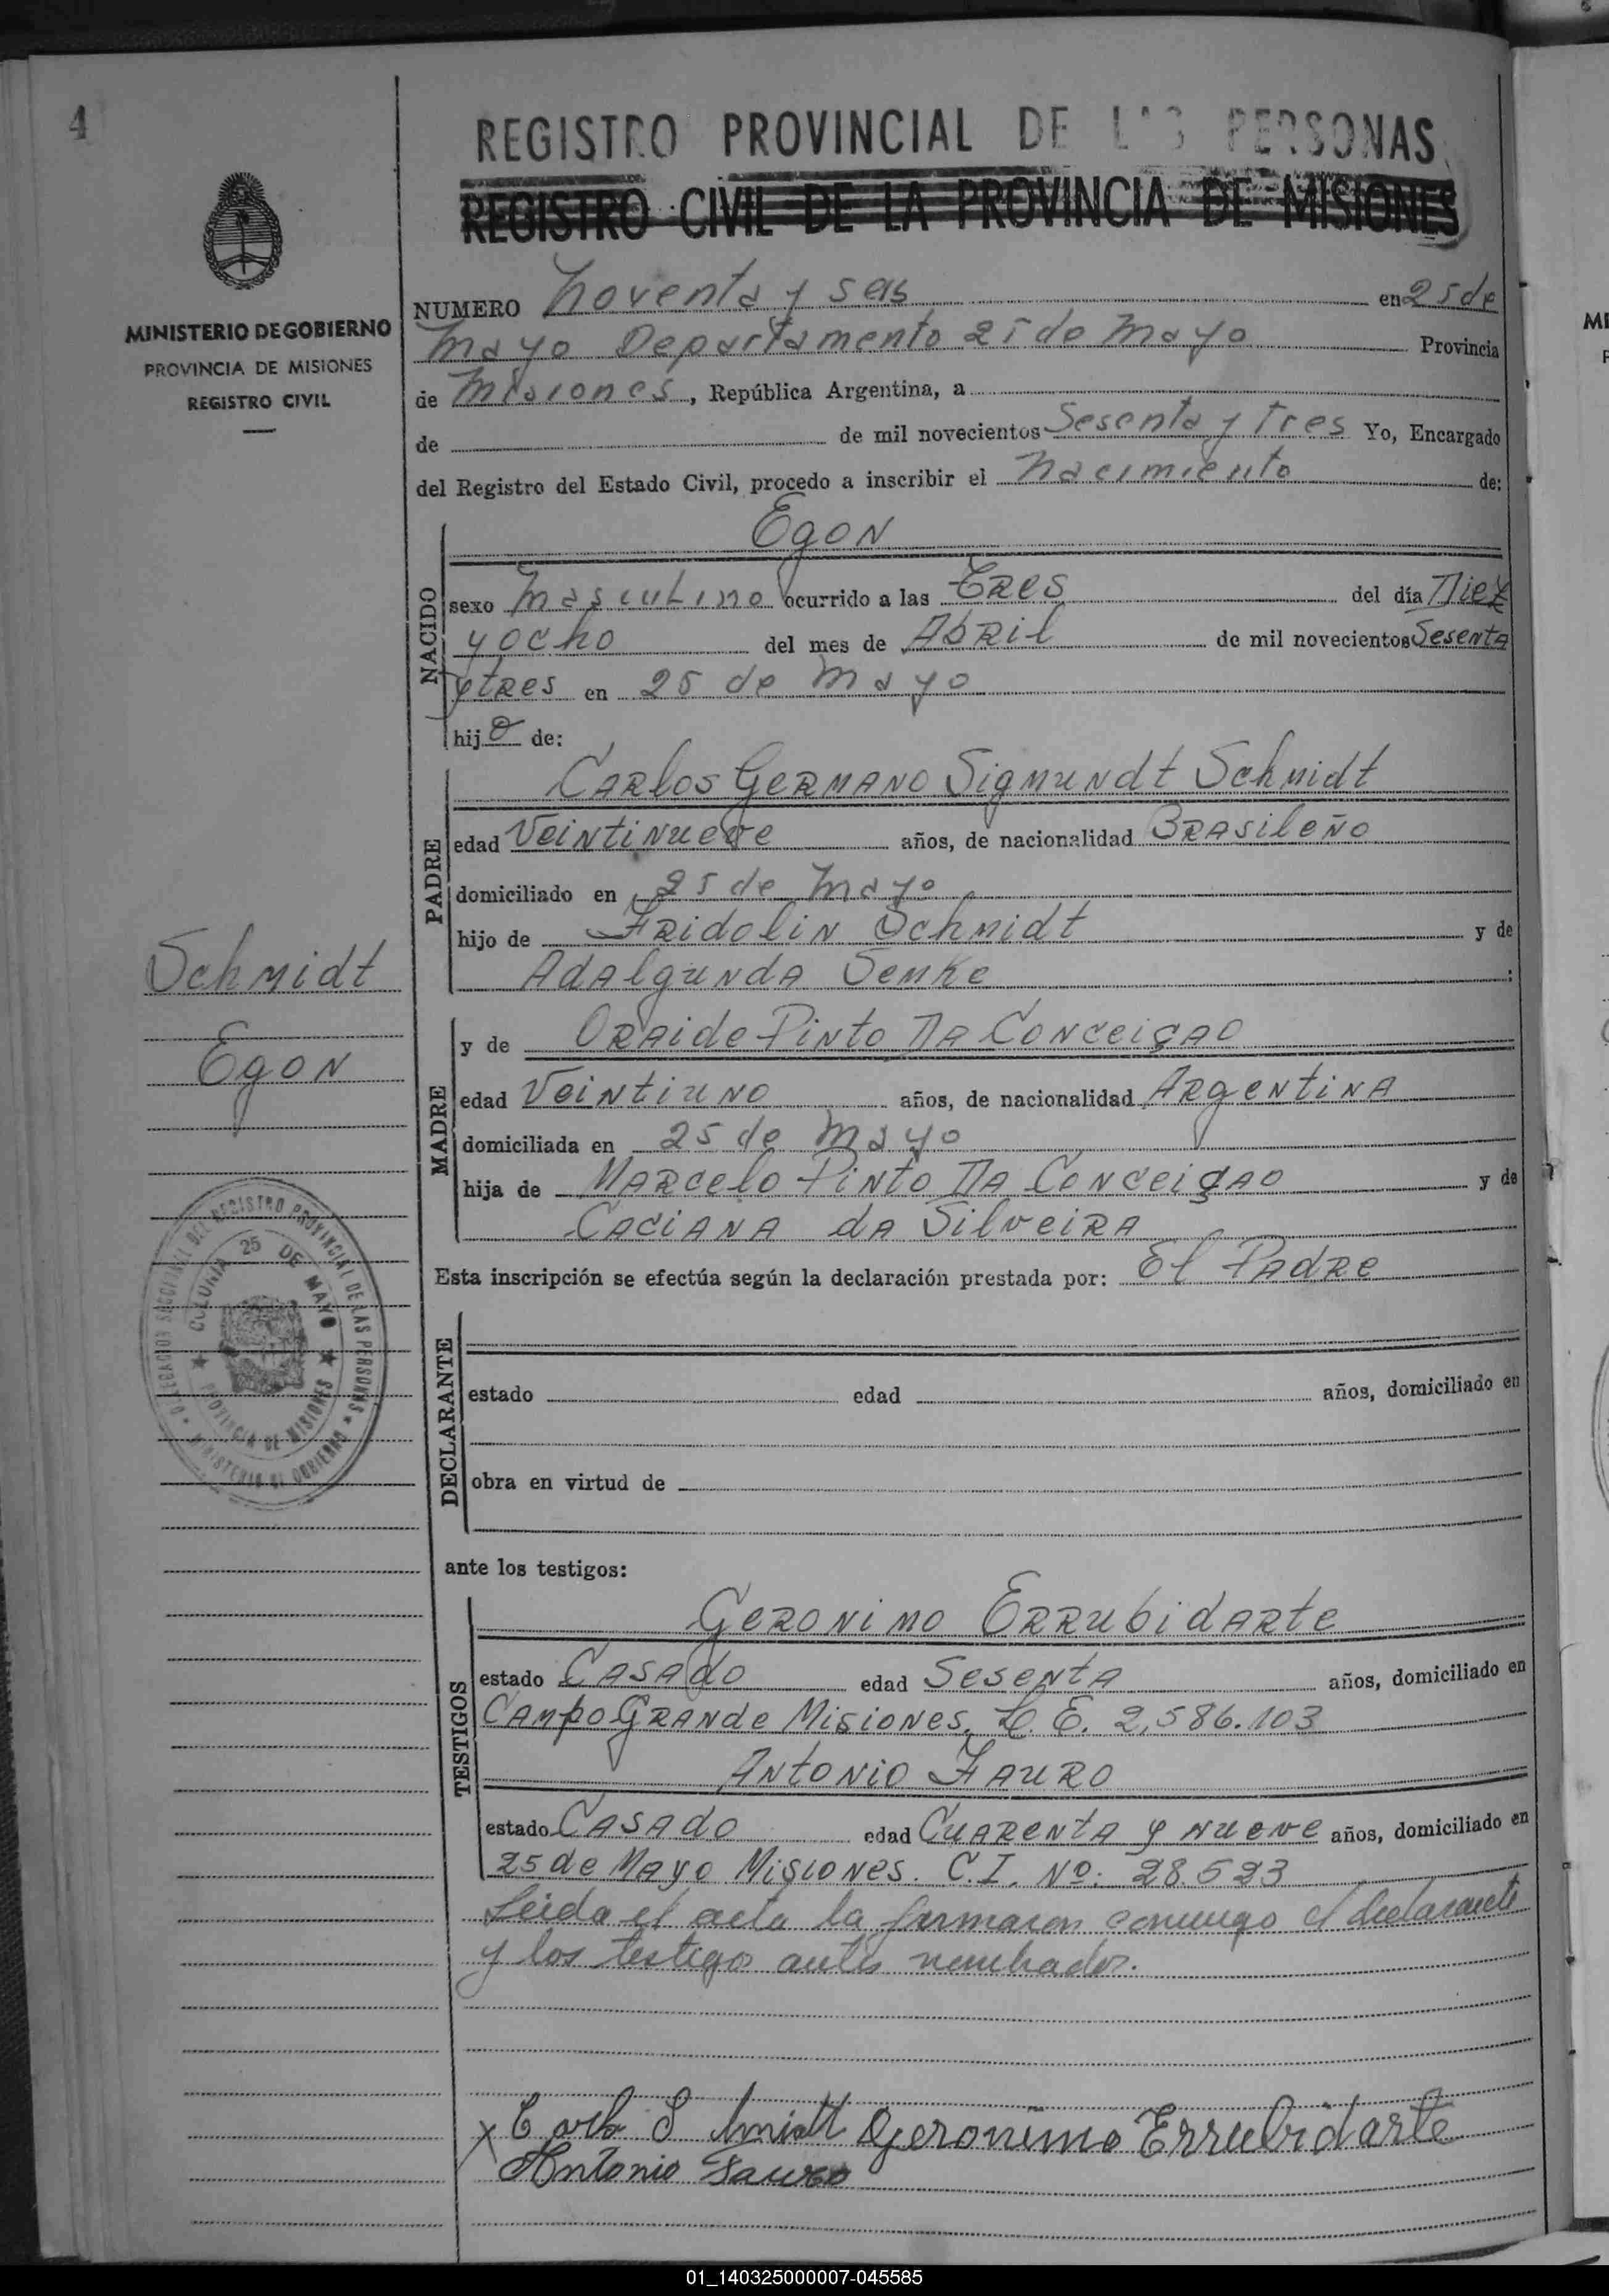 4
REGISTRO PROVINCIAL DE LAS PERSONAS
REGISTRO CIVIL DE LA PROVINCIA DE MISIONES
MINISTERIO DE GOBIERNO
PROVINCIA DE MISIONES
REGISTRO CIVIL
NUMERO Noventa y seis en 25 de
Mayo Departamento 25 de Mayo Provincia
de Misiones, República Argentina, a
de de mil novecientos Sesenta y tres Yo, Encargado
del Registro del Estado Civil, procedo a inscribir el Nacimiento de:
Egon
NACIDO
sexo Masculino ocurrido a las tres del día Diez
y ocho del mes de Abril de mil novecientos Sesenta
y tres en 25 de Mayo
hijo de:
PADRE
Carlos Germano Sigmundt Schmidt
edad Veintinueve años, de nacionalidad Brasileño
domiciliado en 25 de Mayo
hijo de Fridolin Schmidt y de
Adalgunda Semke
Schmidt
Egon
MADRE
y de Oraide Pinto Da Conceiçao
edad Veintiuno años, de nacionalidad Argentina
domiciliada en 25 de Mayo
hija de Marcelo Pinto Da Conceiçao y de
Caciana da Silveira
Esta inscripción se efectúa según la declaración prestada por: El Padre
DELEGACION SECCIONAL DEL REGISTRO PROVINCIAL DE LAS PERSONAS
MINISTERIO DE GOBIERNO
COLONIA 25 DE MAYO
PROVINCIA DE MISIONES
DECLARANTE
estado edad años, domiciliado en
obra en virtud de
ante los testigos:
TESTIGOS
Geronimo Errubidarte
estado Casado edad Sesenta años, domiciliado en
Campo Grande Misiones. L. E. 2.586.103
Antonio Fauro
estado Casado edad Cuarenta y nueve años, domiciliado en
25 de Mayo Misiones. C.I. Nº: 28.523
Leida el acta la firmaron conmigo el declarante
y los testigo antes nombrados.
X Carlo Schmidt Geronimo Errubidarte
Antonio Fauro
01_140325000007-045585